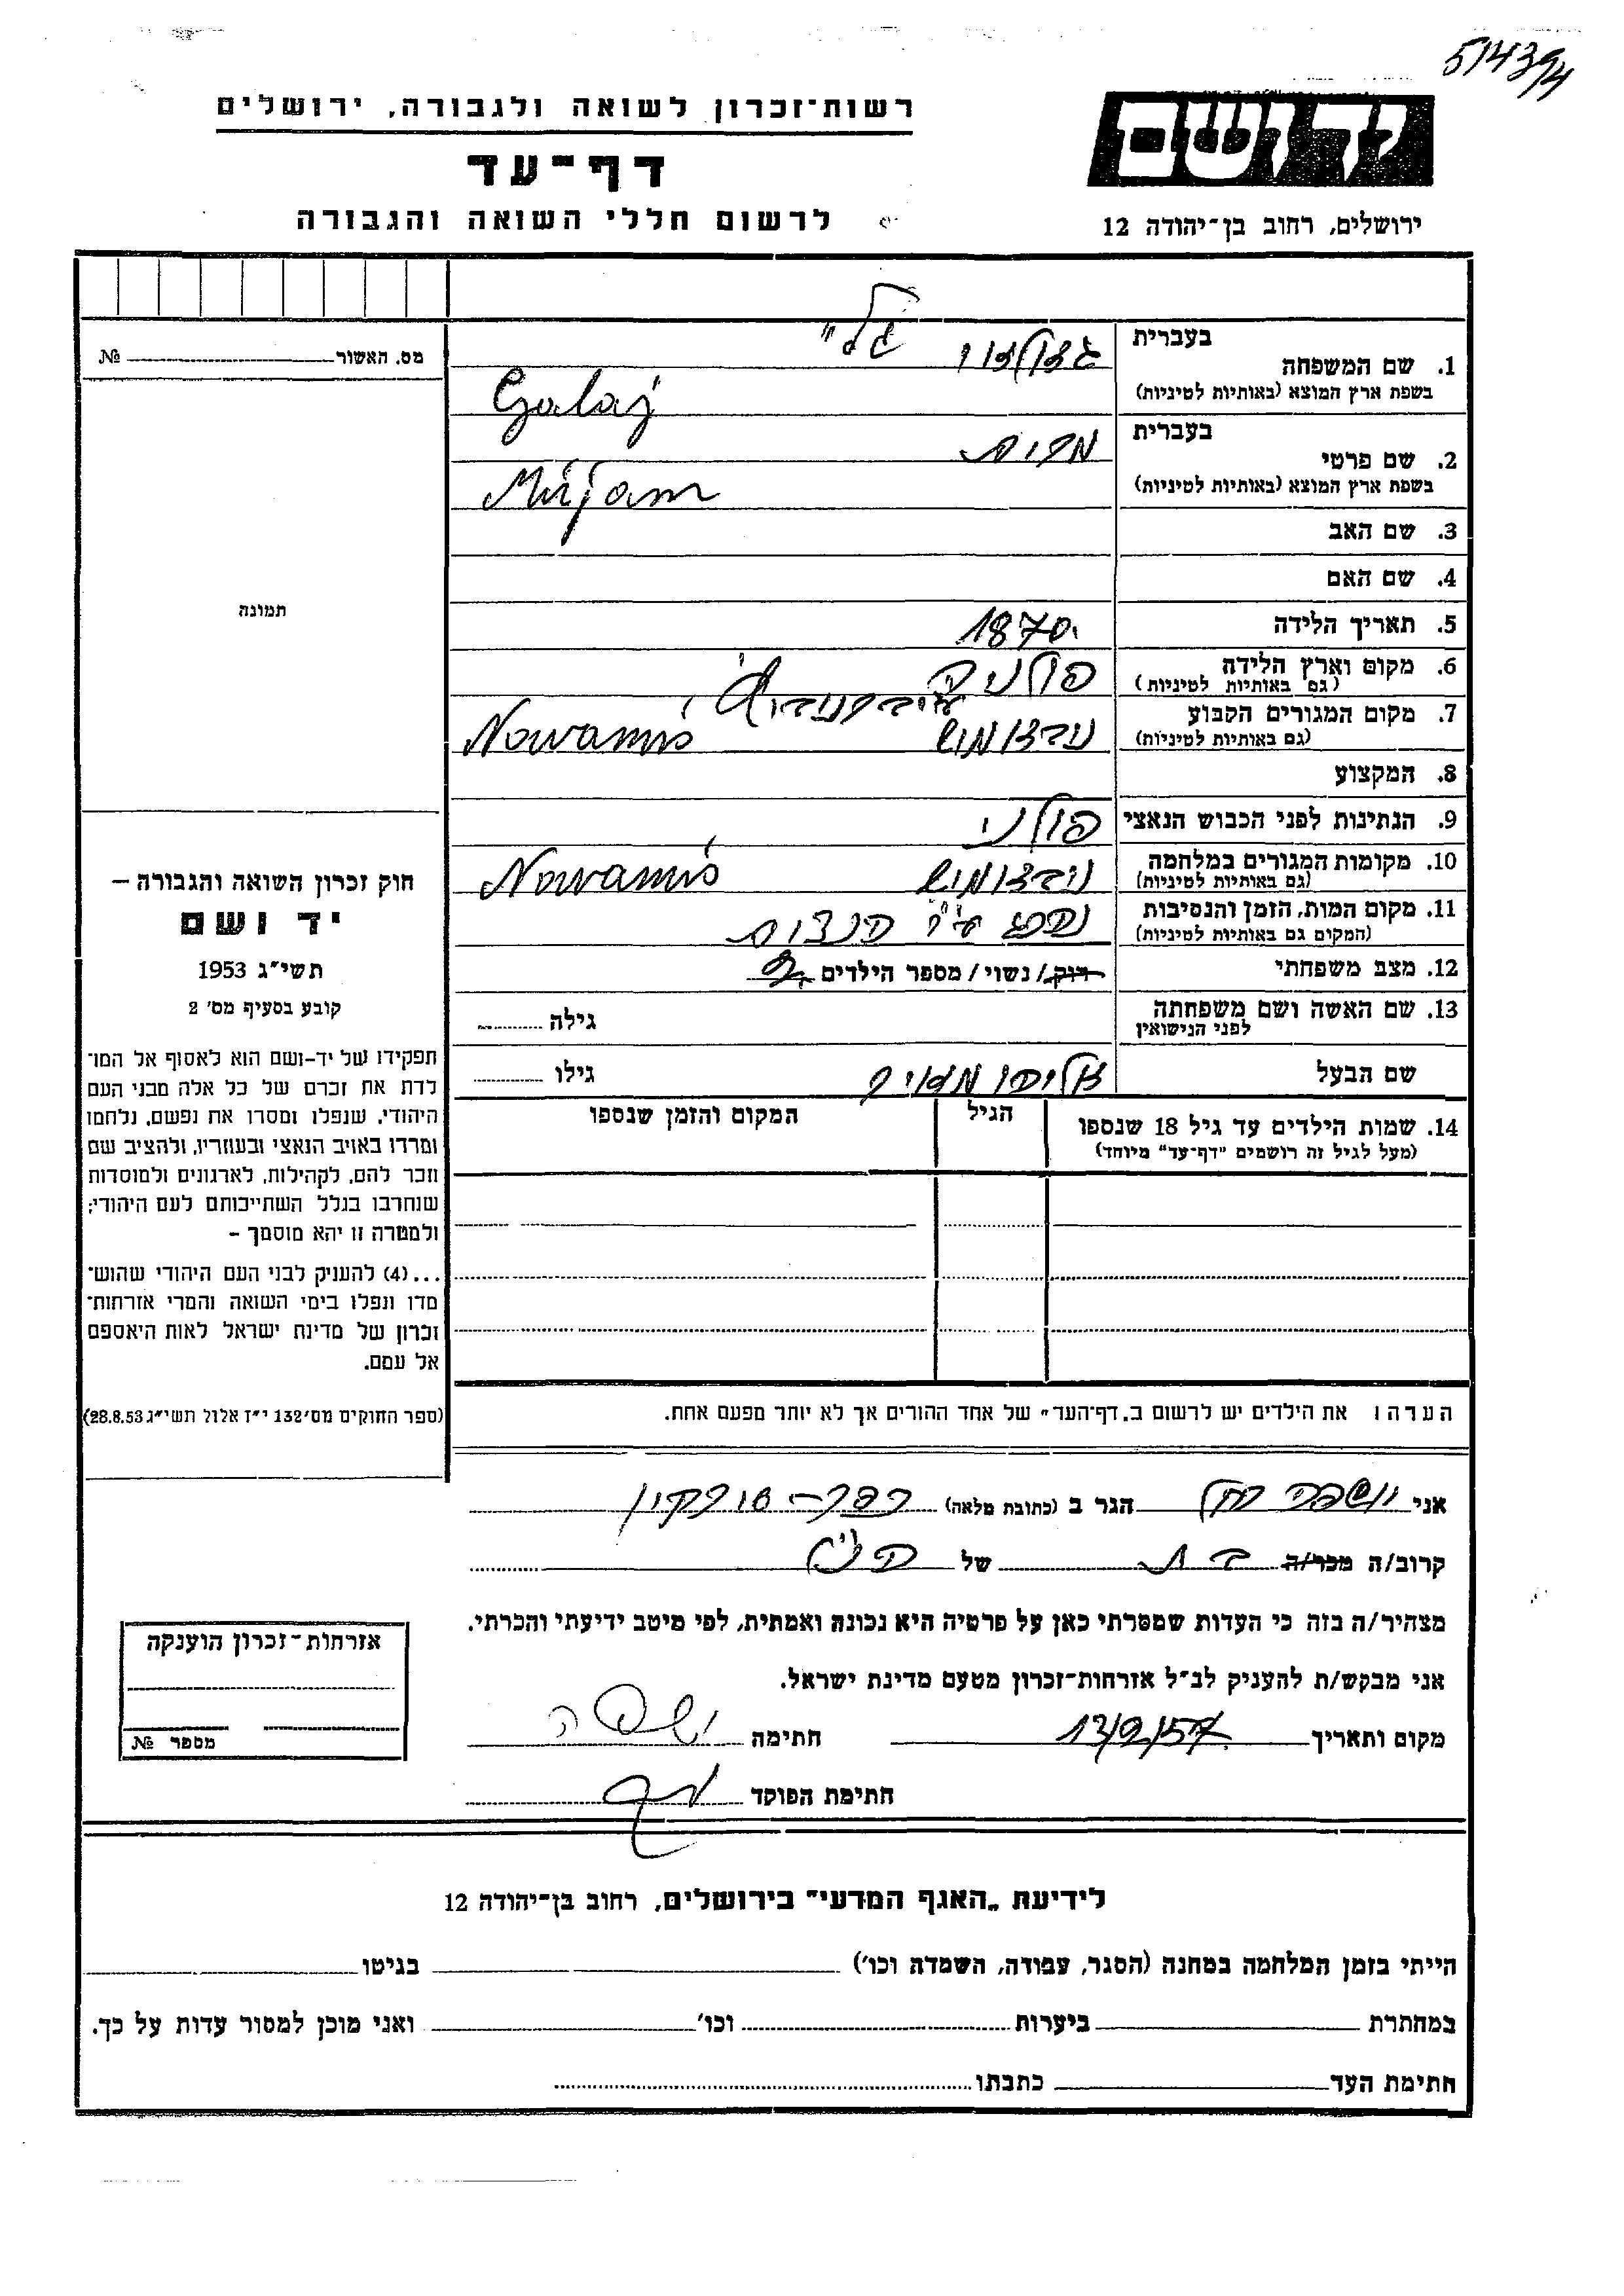 51439/4
רשות־זכרון לשואה ולגבורה, ירושלים
יד ושם
דף־עד
לרשום חללי השואה והגבורה
ירושלים, רחוב בן־יהודה 12
מס. האשור № 
1. שם המשפחה בעברית גאלאי
בשפת ארץ המוצא (באותיות לטיניות) Galaj
2. שם פרטי בעברית מרים
בשפת ארץ המוצא (באותיות לטיניות) Mirjam
3. שם האב
4. שם האם
5. תאריך הלידה 1870
6. מקום וארץ הלידה פולניה
(גם באותיות לטיניות)
7. מקום המגורים הקבוע
(גם באותיות לטיניות) Nowamiś
8. המקצוע
9. הנתינות לפני הכבוש הנאצי פולני
10. מקומות המגורים במלחמה
(גם באותיות לטיניות) Nowamiś
11. מקום המות, הזמן והנסיבות
(המקום גם באותיות לטיניות)
12. מצב משפחתי רוק/ נשוי/ מספר הילדים
13. שם האשה ושם משפחתה גילה
לפני הנישואין
שם הבעל גילו
14. שמות הילדים עד גיל 18 שנספו הגיל המקום והזמן שנספו
(מעל לגיל זה רושמים "דף־עד" מיוחד)
תמונה
חוק זכרון השואה והגבורה –
יד ושם
תשי"ג 1953
קובע בסעיף מס' 2
תפקידו של יד-ושם הוא לאסוף אל המו־
לדת את זכרם של כל אלה מבני העם
היהודי, שנפלו ומסרו את נפשם, נלחמו
ומרדו באויב הנאצי ובעוזריו, ולהציב שם
וזכר להם, לקהילות, לארגונים ולמוסדות
שנחרבו בגלל השתייכותם לעם היהודי;
ולמטרה זו יהא מוסמך –
...(4) להעניק לבני העם היהודי שהוש־
מדו ונפלו בימי השואה והמרי אזרחות־
זכרון של מדינת ישראל לאות היאספם
אל עמם.
(ספר החוקים מס' 132 י"ז אלול תשי"ג 28.8.53)
הערה: את הילדים יש לרשום ב„דף־העד" של אחד ההורים אך לא יותר מפעם אחת.
אני הגר ב (כתובת מלאה)
קרוב/ה מכר/ה של
מצהיר/ה בזה כי העדות שמסרתי כאן על פרטיה היא נכונה ואמתית, לפי מיטב ידיעתי והכרתי.
אני מבקש/ת להעניק לב"ל אזרחות־זכרון מטעם מדינת ישראל.
מקום ותאריך 13/2/57 חתימה
חתימת הפוקד
אזרחות־זכרון הוענקה
מספר №
לידיעת „האגף המדעי" בירושלים, רחוב בן־יהודה 12
הייתי בזמן המלחמה במחנה (הסגר, עבודה, השמדה וכו') בגיטו
במחתרת ביערות וכו' ואני מוכן למסור עדות על כך.
חתימת העד כתבתו